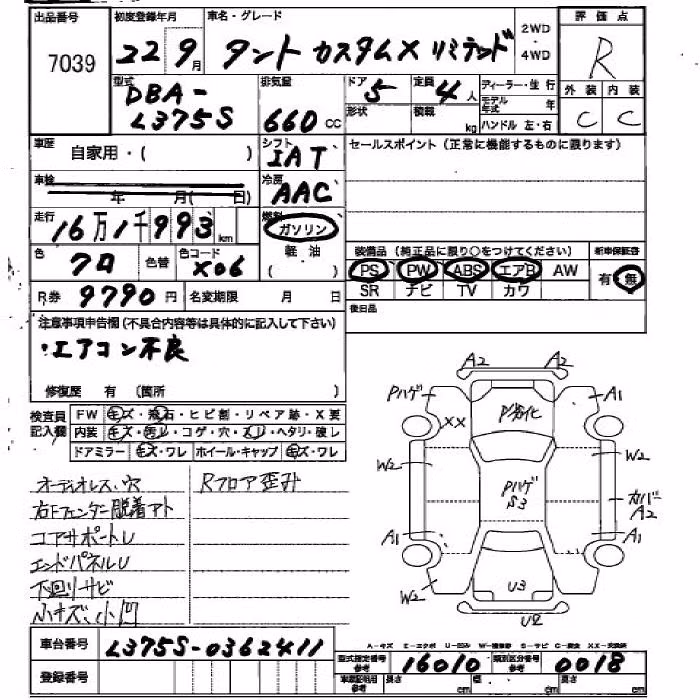 出品番号 初度登録年月 車名・グレード 2WD 評価点
7039 22 9月 タント カスタムX リミテッド ・4WD R
型式 DBA- 排気量 ドア 5 定員 4人 ディーラー・並行 外装 内装
L375S 660cc 形状 積載 kg モデル年式 年 C C
ハンドル 左・右
車歴 自家用・( ) シフト IAT セールスポイント(正常に機能するものに限ります)
車検 年 月( 日) 冷房 AAC
走行 16万1千993km 燃料 ガソリン
軽・油 装備品(純正品に限り○をつけてください) 新車保証書
色 クロ 色替 色コード X06 ( ) PS PW ABS エアB AW 有・無
R券 9790円 名変期限 月 日 SR ナビ TV カワ
注意事項申告欄(不具合内容等は具体的に記入して下さい) 後日品
・エアコン不良
修復歴 有(箇所 )
検査員記入欄 FW キズ・飛石・ヒビ割・リペア跡・X要
内装 キズ・汚レ・コゲ・穴・スレ・ヘタリ・破レ
ドアミラー キズ・ワレ ホイール・キャップ キズ・ワレ
オーディオレス、穴 Rフロア歪み
右Fフェンダー脱着アト
コアサポートU
エンドパネルU
下回りサビ
小キズ、小凹
A2 A2
Pハゲ P劣化 A1
XX
W2 W2
Pハゲ S3 カバーA2
A1 A1
W2 U3
U2
車台番号 L375S-0362411
A-キズ E-エクボ U-凹み W-補修跡 S-サビ C-腐食 XX-交換済
登録番号 型式指定番号 参考 16010 類別区分番号 参考 0018
車庫証明用 参考 長さ cm 幅 cm 高さ cm